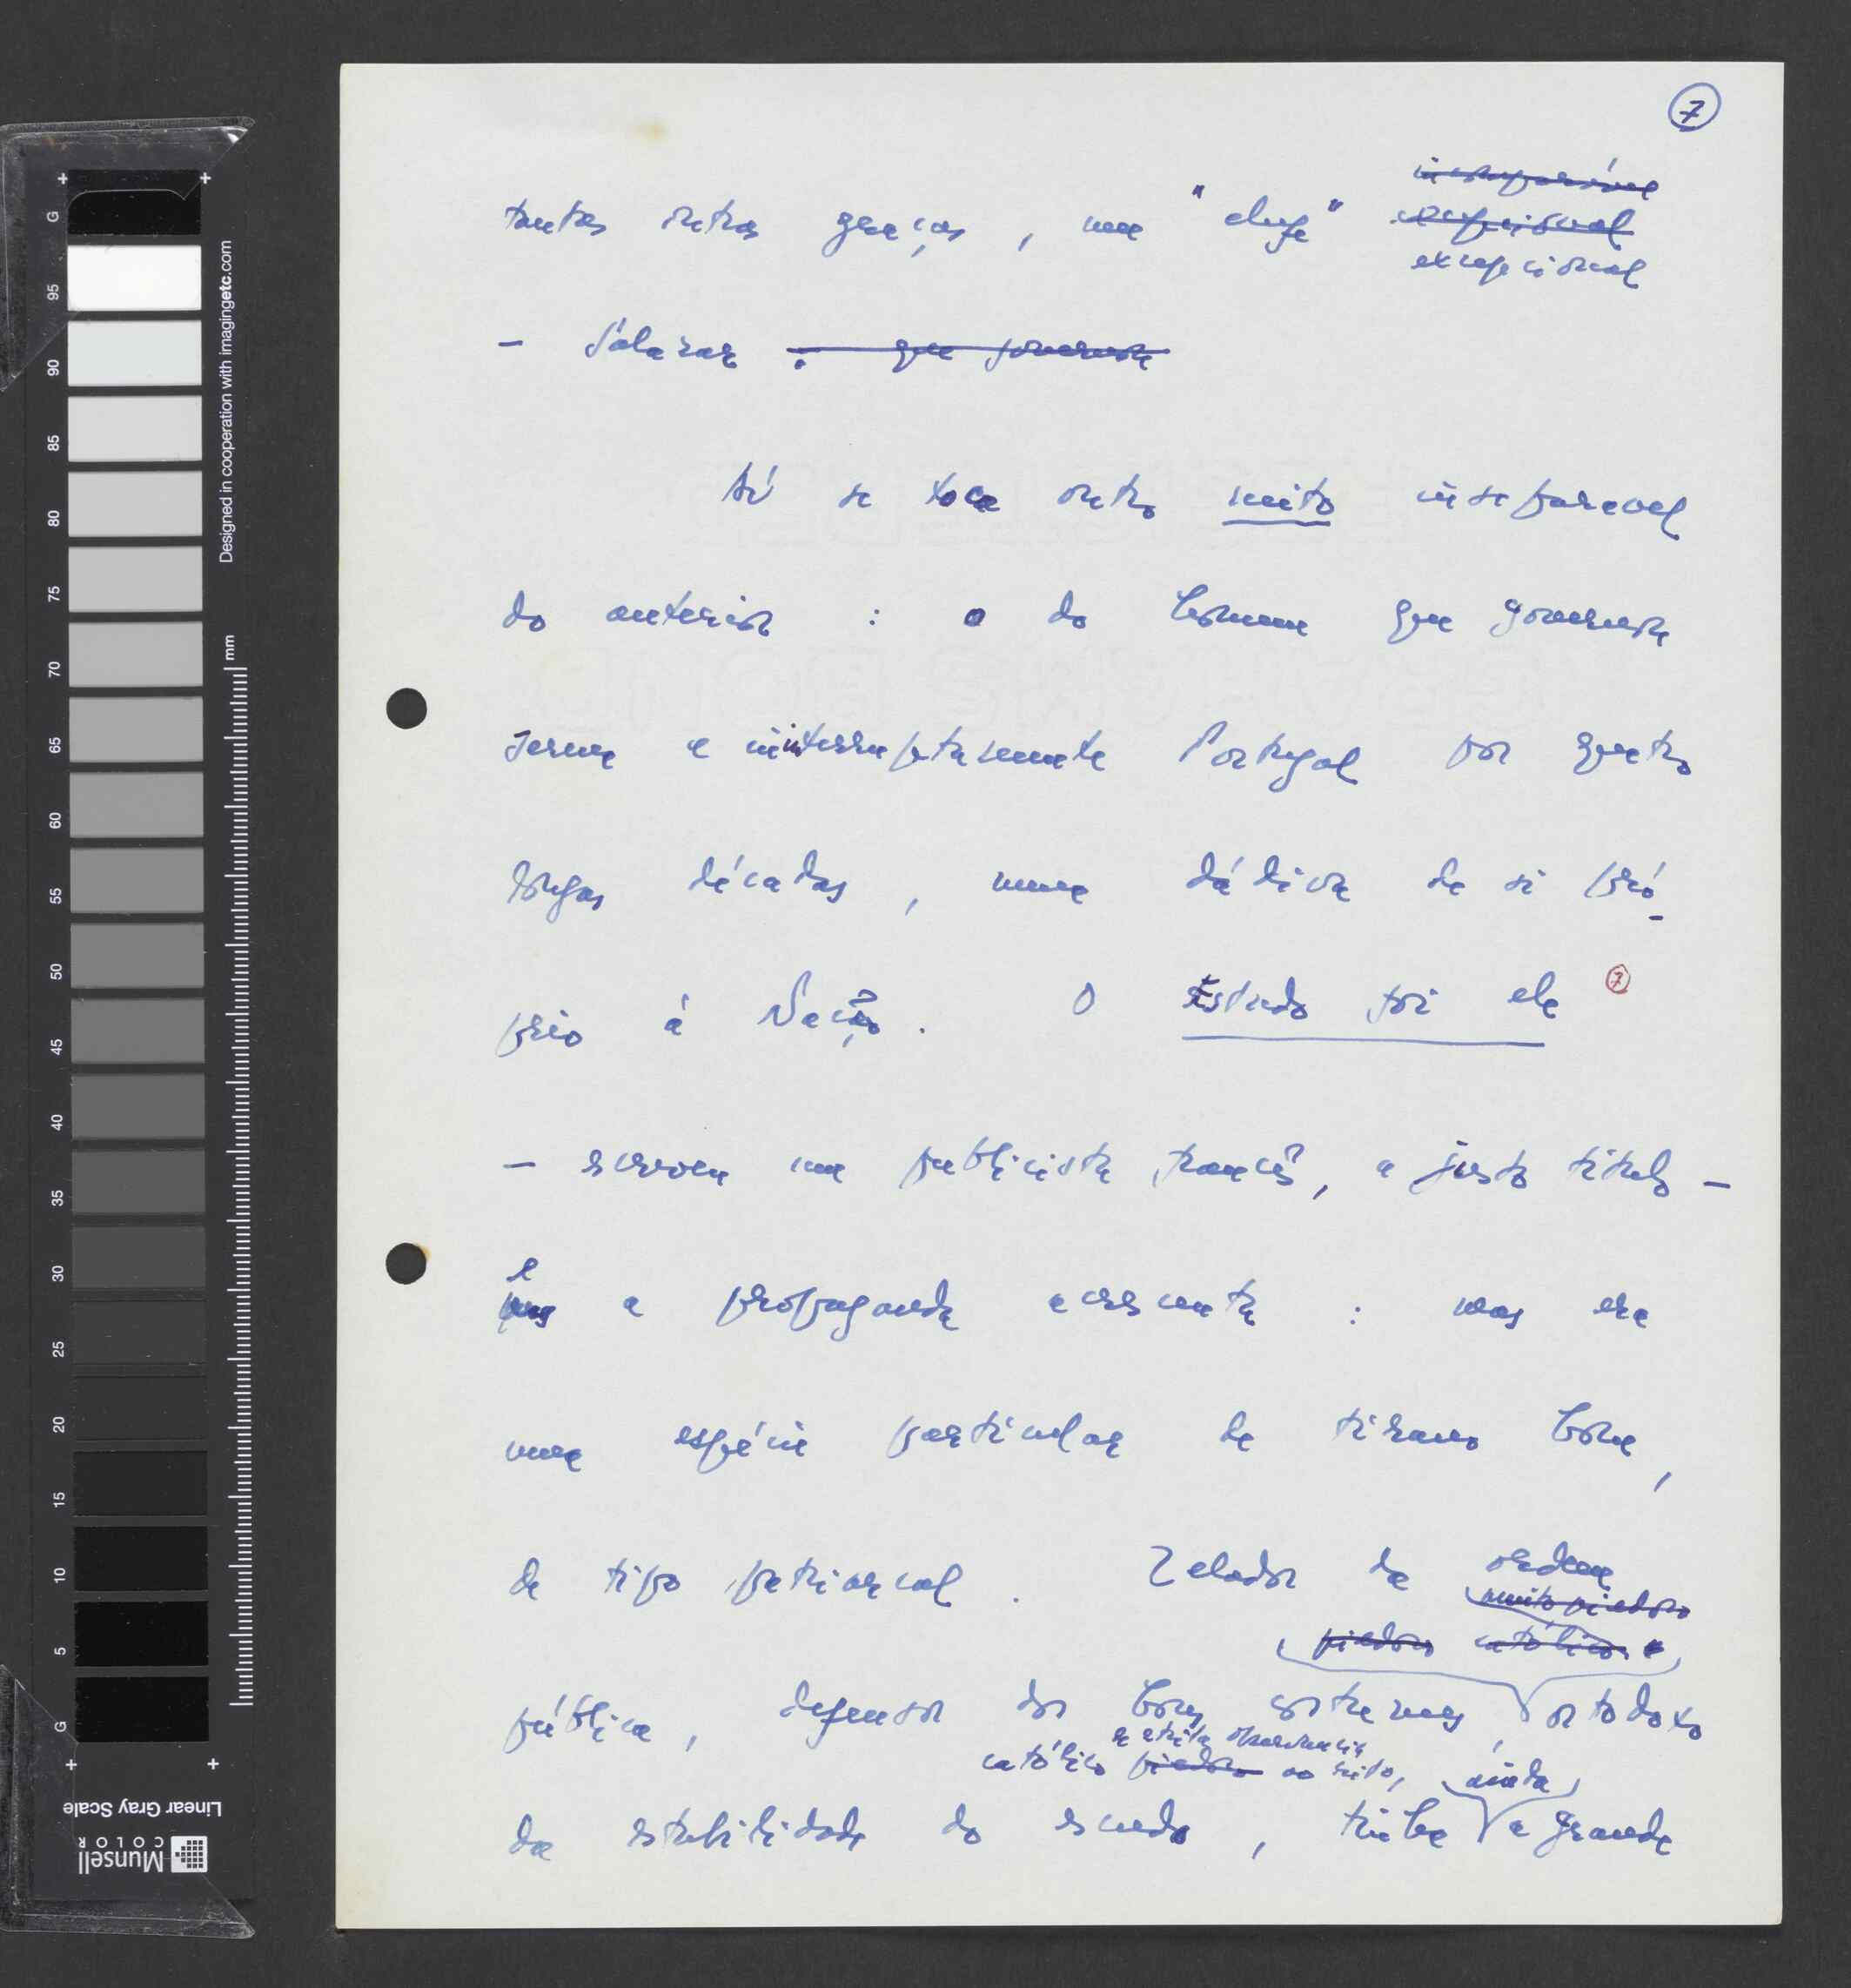 7
incomparável
tantas outras graças, um "chefe" excepcional
excepcional
- Salazar : que governou
Aí se toca outro mito inseparavel
do anterior : o do homem que governou
serena e ininterruptamente Portugal por quatro
longas décadas, numa dádiva de si pró-
prio à Nação. O Estado foi ele 7
- escreveu um publicista francês, a justo título -
e
a propaganda acrescenta : mas era
uma espécie particular de tirano bom,
de tipo patriarcal. Zelador da ordem
muito piedoso
piedoso católico
pública, defensor dos bons costumes, ortodoxo
de estrita observancia
católico piedoso ao rito, ainda
da estabilidade do escudo, tinha a grande
G 95 90 85 80 75 70 65 60 55 50 45 40 35 30 25 20 15 10 5 G
Designed in cooperation with imagingetc.com
mm
Linear Gray Scale
Munsell
COLOR